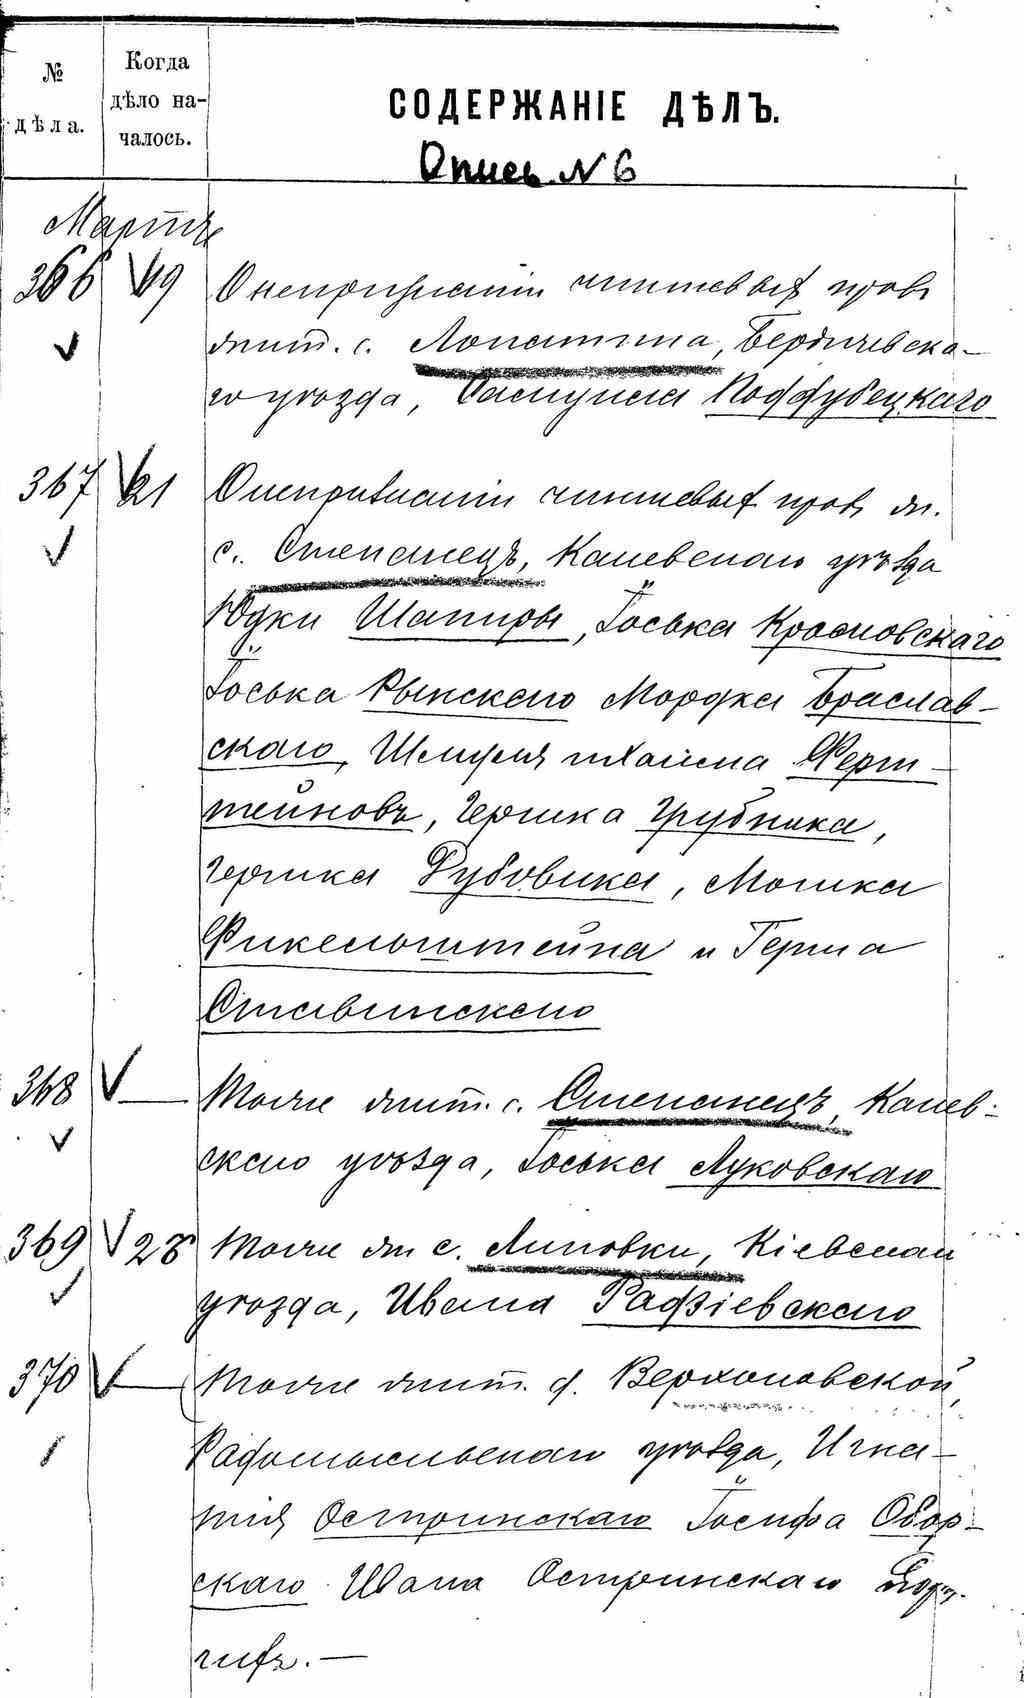 № дѣла.
Когда дѣло на-
чалось.
СОДЕРЖАНІЕ ДѢЛЪ.
Опись N 6
Мартъ
366 19 О непризнаніи чиншевыхъ правъ
жит. с. Лопатина, Бердичевска-
го уѣзда, Поддубецкаго
367 21 О непризнаніи чиншевыхъ правъ жи.
с. Степанецъ, Каневскаго уѣзда
Юдки Шапиры, Іоська Красновскаго
Іоська Рынскаго Мордка Браслав-
скаго, Шмуля и Хаима Ферш-
тейновъ, Гершка Грубника,
Гершка Дубовика, Мошка
Финкельштейна и Герша
Ставинскаго
368 — Тоже жит. с. Степанецъ, Канев-
скаго уѣзда, Іоська Луковскаго
369 28 Тоже жи с. Липовки, Кіевскаго
уѣзда, Ивана Радзіевскаго
370 — Тоже жит. д. Верхоловской,
Радомысльскаго уѣзда, Игна-
тія Остринскаго Іосифа Обор-
скаго Ивана Остринскаго и др.
гихъ. —